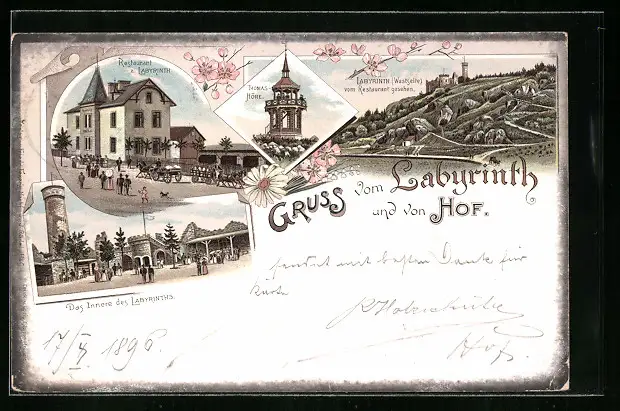 Restaurant
z. LABYRINTH
THOMAS-
HÖHE.
LABYRINTH (Westseite)
vom Restaurant gesehen.
GRUSS vom Labyrinth
und von HOF.
Das Innere des LABYRINTHS.
sendet mit besten Dank für
Karte
Hof
17/X 1896.